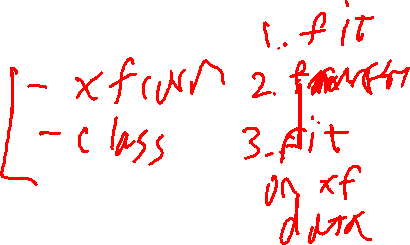 - xform
- class
1. fit
2. transfor
3. fit
on xf
data